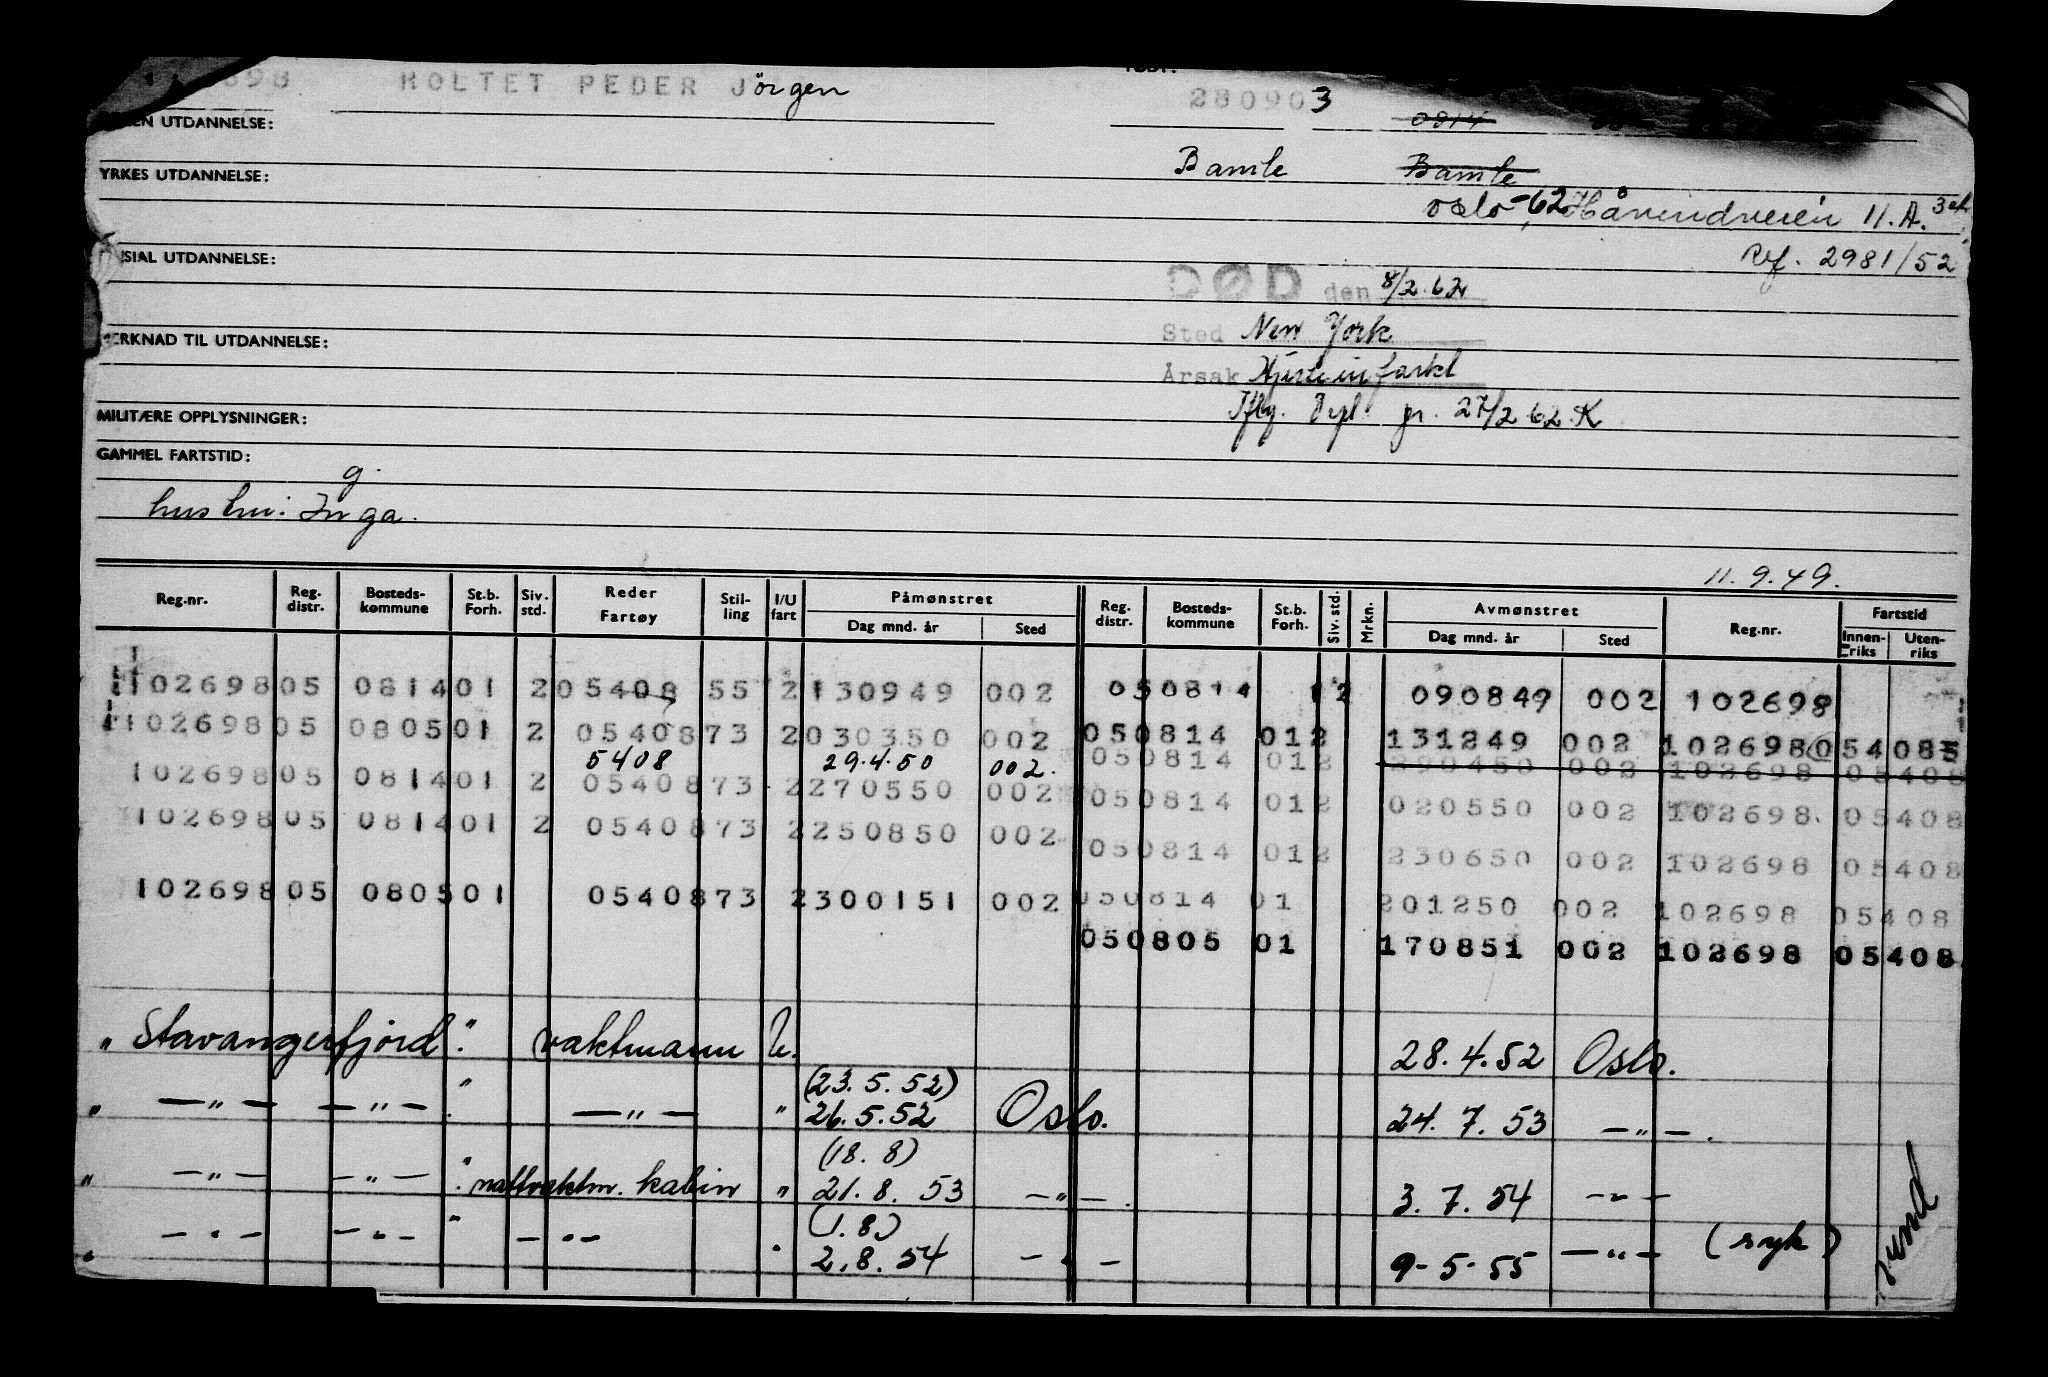 698 HOLTET PEDER Jörgen 280903 0814
EN UTDANNELSE:
Bamle Bamle
YRKES UTDANNELSE:
Oslo-62, Håvundveien 11.A. 3et
SIAL UTDANNELSE: Ref. 2981/52
DØD den 8/2.62
Sted New York
MERKNAD TIL UTDANNELSE:
Årsak Hjerteinfarkt
Iflg. Depl. pr. 27/2 62.K
MILITÆRE OPPLYSNINGER:
GAMMEL FARTSTID:
g.
hustru: Inga.
11.9.49.
Reg.nr. Reg. distr. Bosteds-kommune St.b. Forh. Siv. std. Reder Fartøy Stil-ling I/U fart Påmønstret Dag mnd. år Sted Reg. distr. Bosteds-kommune St.b. Forh. Siv. std. Mrkn. Avmønstret Dag mnd. år Sted Reg.nr. Fartstid Innen-riks Uten-riks
102698 05 0814 01 2 05408 55 2 130949 002 05 0814 12 090849 002 102698
102698 05 0805 01 2 05408 73 2 030350 002 05 0814 01 2 131249 002 102698 05408
5408 29.4.50 002. 05 0814 01 2 290450 002 102698 05408
102698 05 0814 01 2 05408 73 2 270550 002 05 0814 01 2 020550 002 102698 05408
102698 05 0814 01 2 05408 73 2 250850 002 05 0814 01 2 230650 002 102698 05408
102698 05 0805 01 05408 73 2 300151 002 05 0814 01 201250 002 102698 05408
05 0805 01 170851 002 102698 05408
„Stavangerfjord". vaktmann U. 28.4.52 Oslo.
(23.5.52)
„ —„— —„—." —„— " 26.5.52 Oslo. 24.7.53 —"—.
(18.8)
„ —„— —„—." nattvaktm. kabin " 21.8.53 —"—. 3.7.54 —"—
(1.8)
„ —"— —"— " —"— " 2.8.54 —"— 9-5-55 —"— (syk)